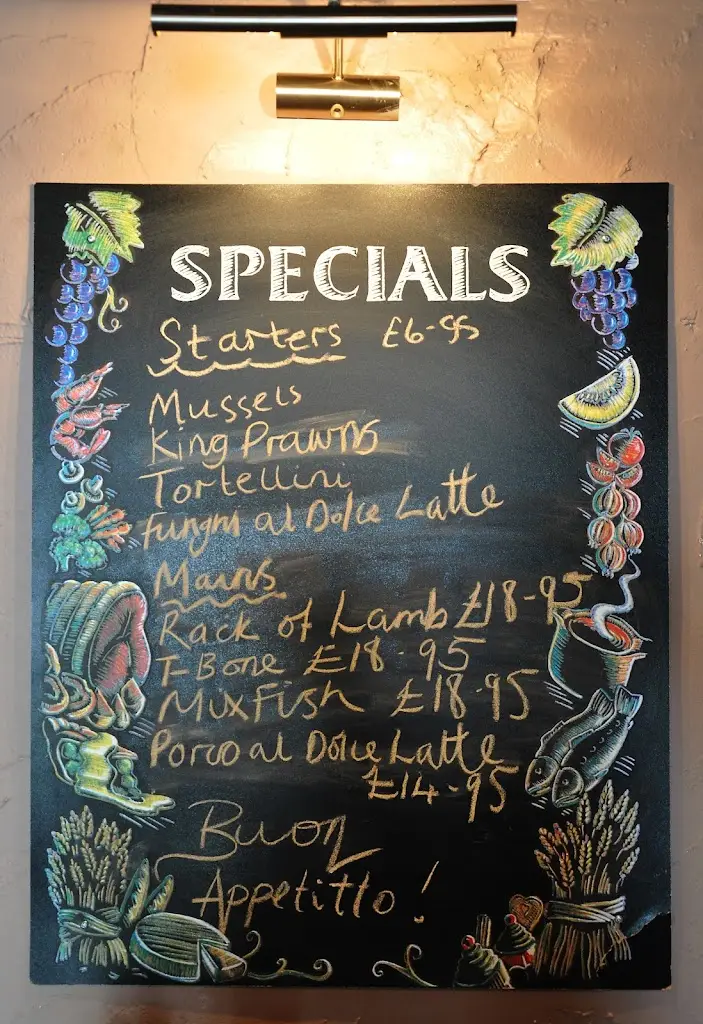 SPECIALS
Starters £6-95
Mussels
King Prawns
Tortellini
Funghi al Dolce Latte
Mains
Rack of Lamb £18-95
T-Bone £18-95
Mix Fish £18-95
Porco al Dolce Latte
£14-95
Buon
Appetitto!